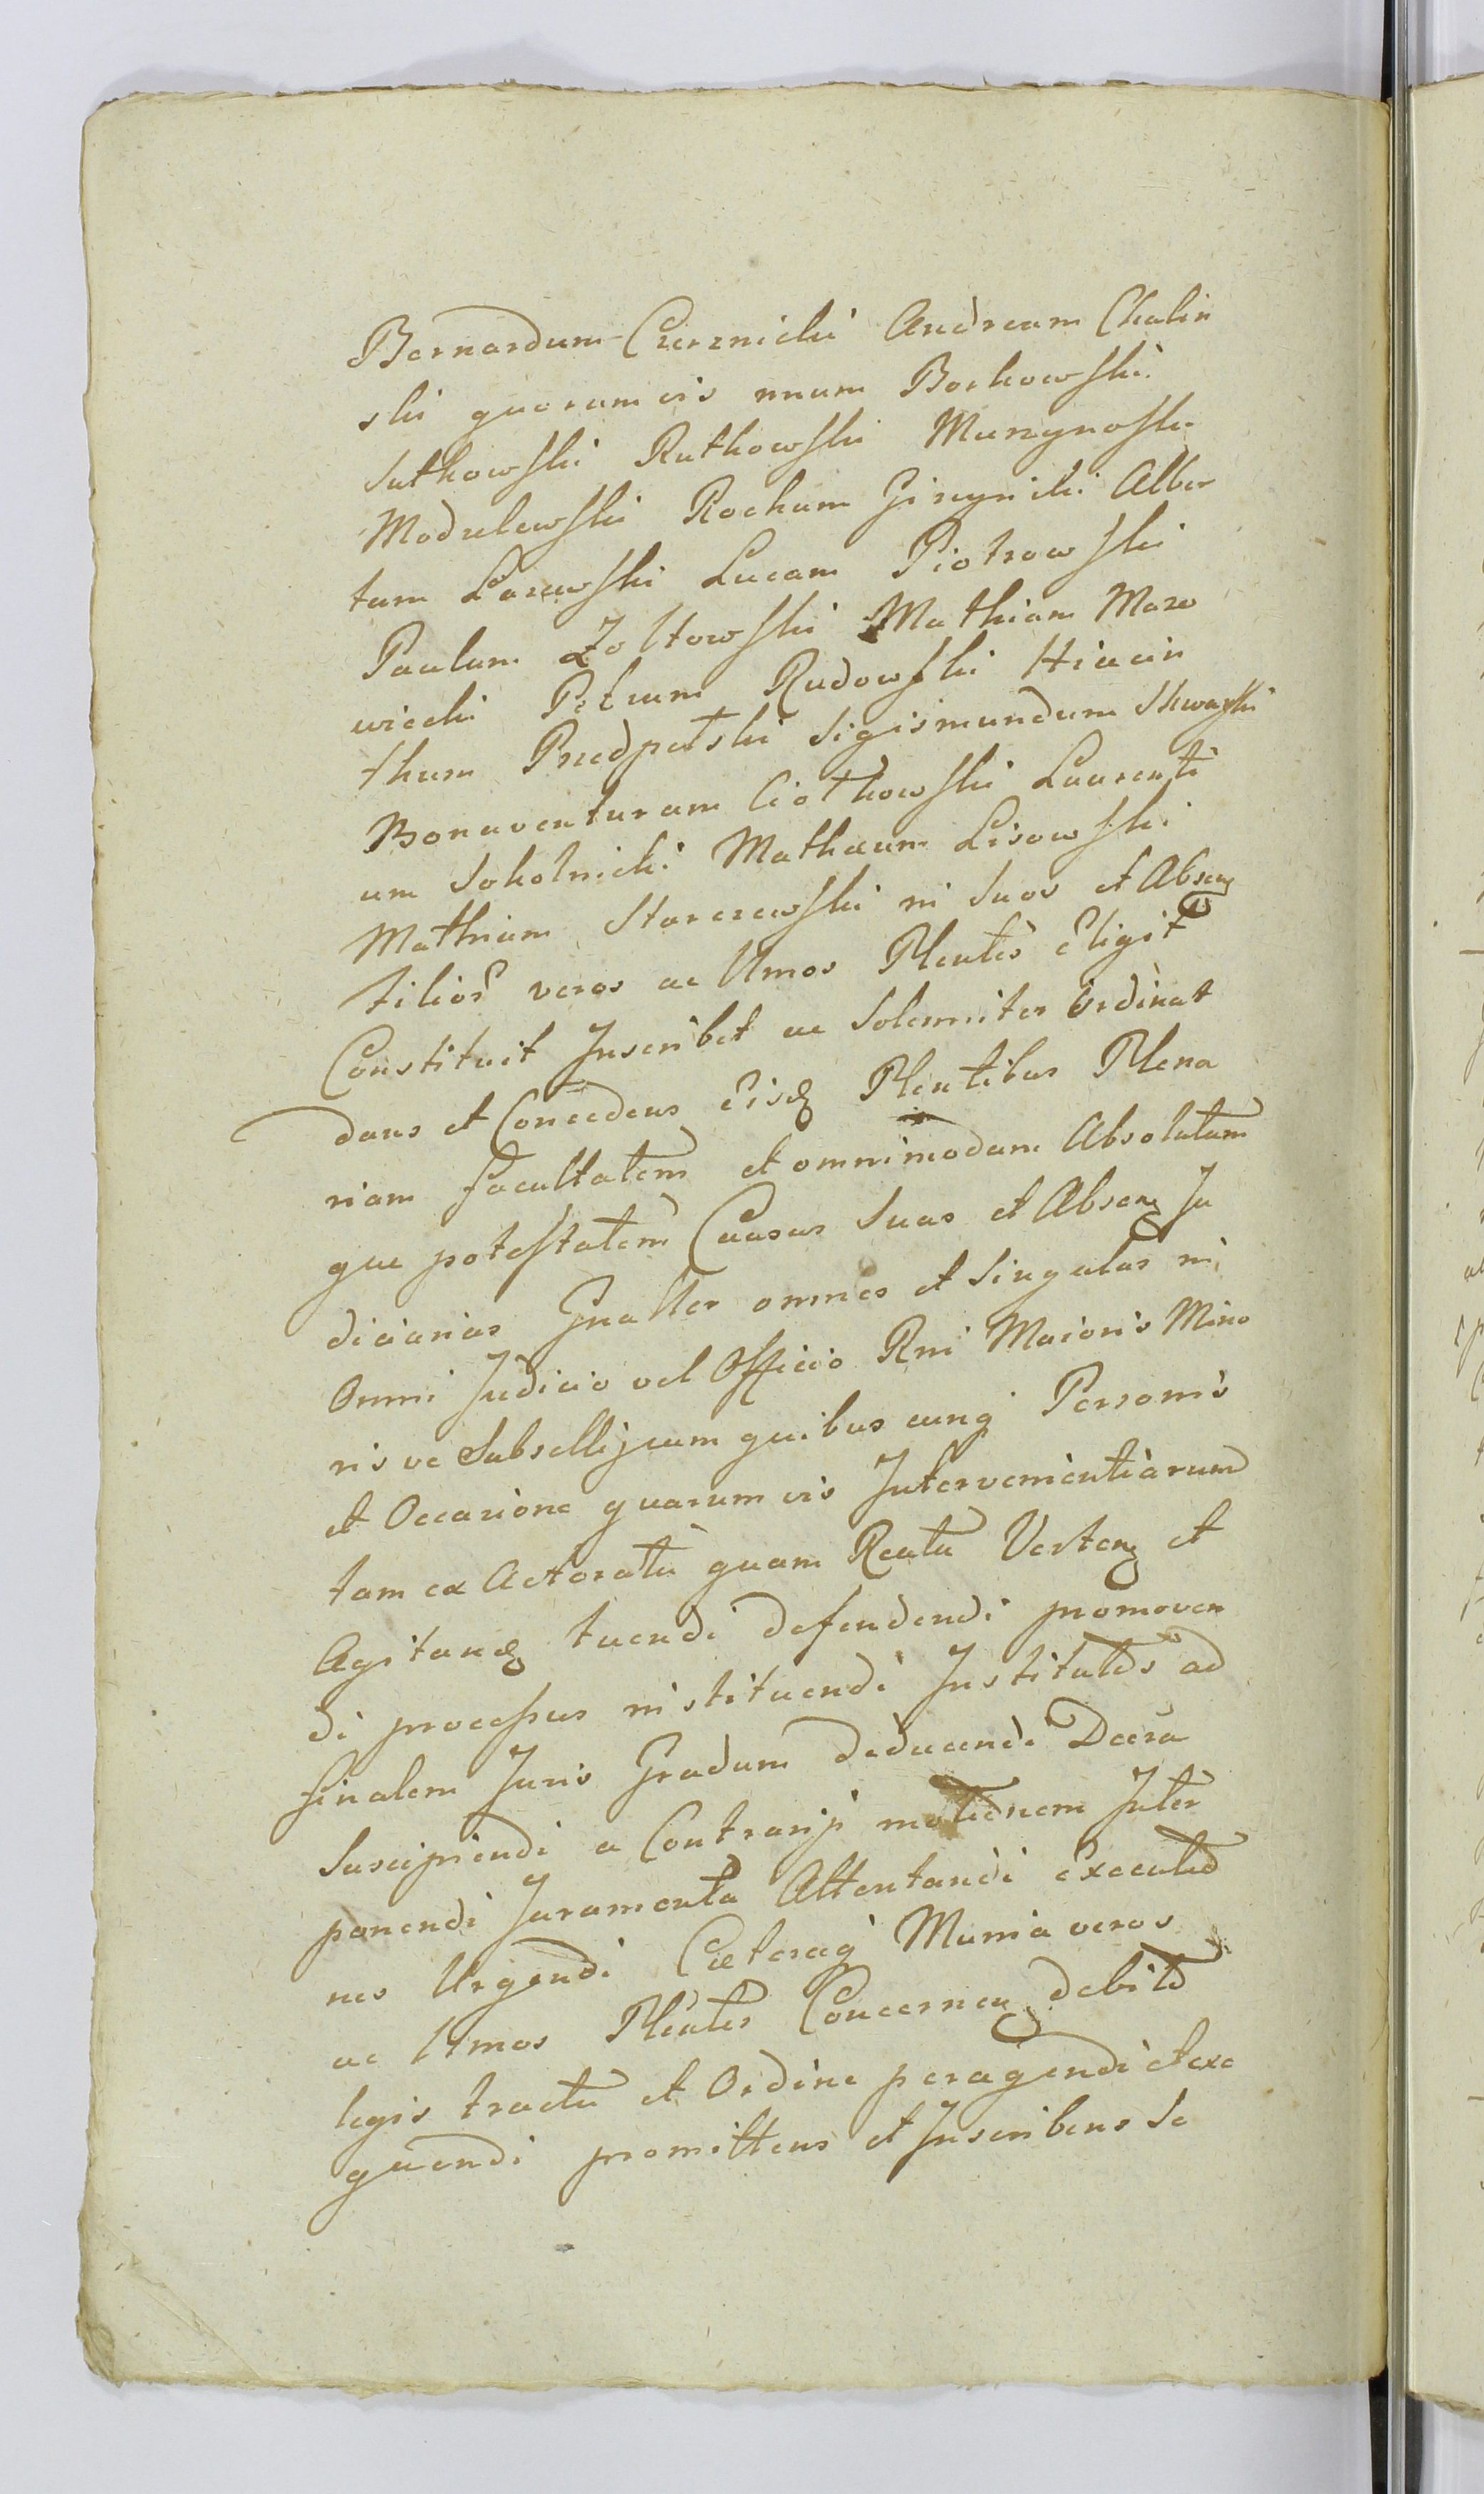 Bernardum Czerznicki Andream Chalin
ski quorumvis unum Borkowski
Sutkowski Rutkowski Murzynoski
Modrzlewski Rochum Gizynicki Alber
tum Lazewski Lucam Piotrowski
Paulum Zoltowski Mathiam Mazo
wiecki Petrum Rudowski Hiacin
thum Przedpełski Sigismundum Skwarski
Bonaventuram Ciotkowski Laurenti
um Sokolnicki Mathæum Lisowski
Mathiam Starczewski in Suos et Absen
tilior veros ac Utmos Plentes Eligit
Constituit Inscribet ac Solemniter Ordinat
dans et Concedens Eisd Plentibus Plena
riam facultatem et omnimodam Absolutam
que potestatem Causas Suas et Absen Ju
diciarias Gnalter omnes et Singulas in
Omni Judicio vel Officio Rni Maioris Mino
ris ve Subsellij cum quibus cunq Personis
et Occasione quarum vis Intervenientiarum
tam ex Actoratu quam Reatu Verten et
Agitand tuendi defendendi promoven
di processus instituendi Institutos ad
finalem Juris Gradum deducendi Decra
Suscipiendi a Contrarij motionem Inter
ponendi Juramenta Attentandi Executio
nes Urgendi Cæteraq Munia veros
ac Utmos Plentes Concernen debito
legis tractu et Ordine peragendi et exe
quendi promittens et Inscribens Se